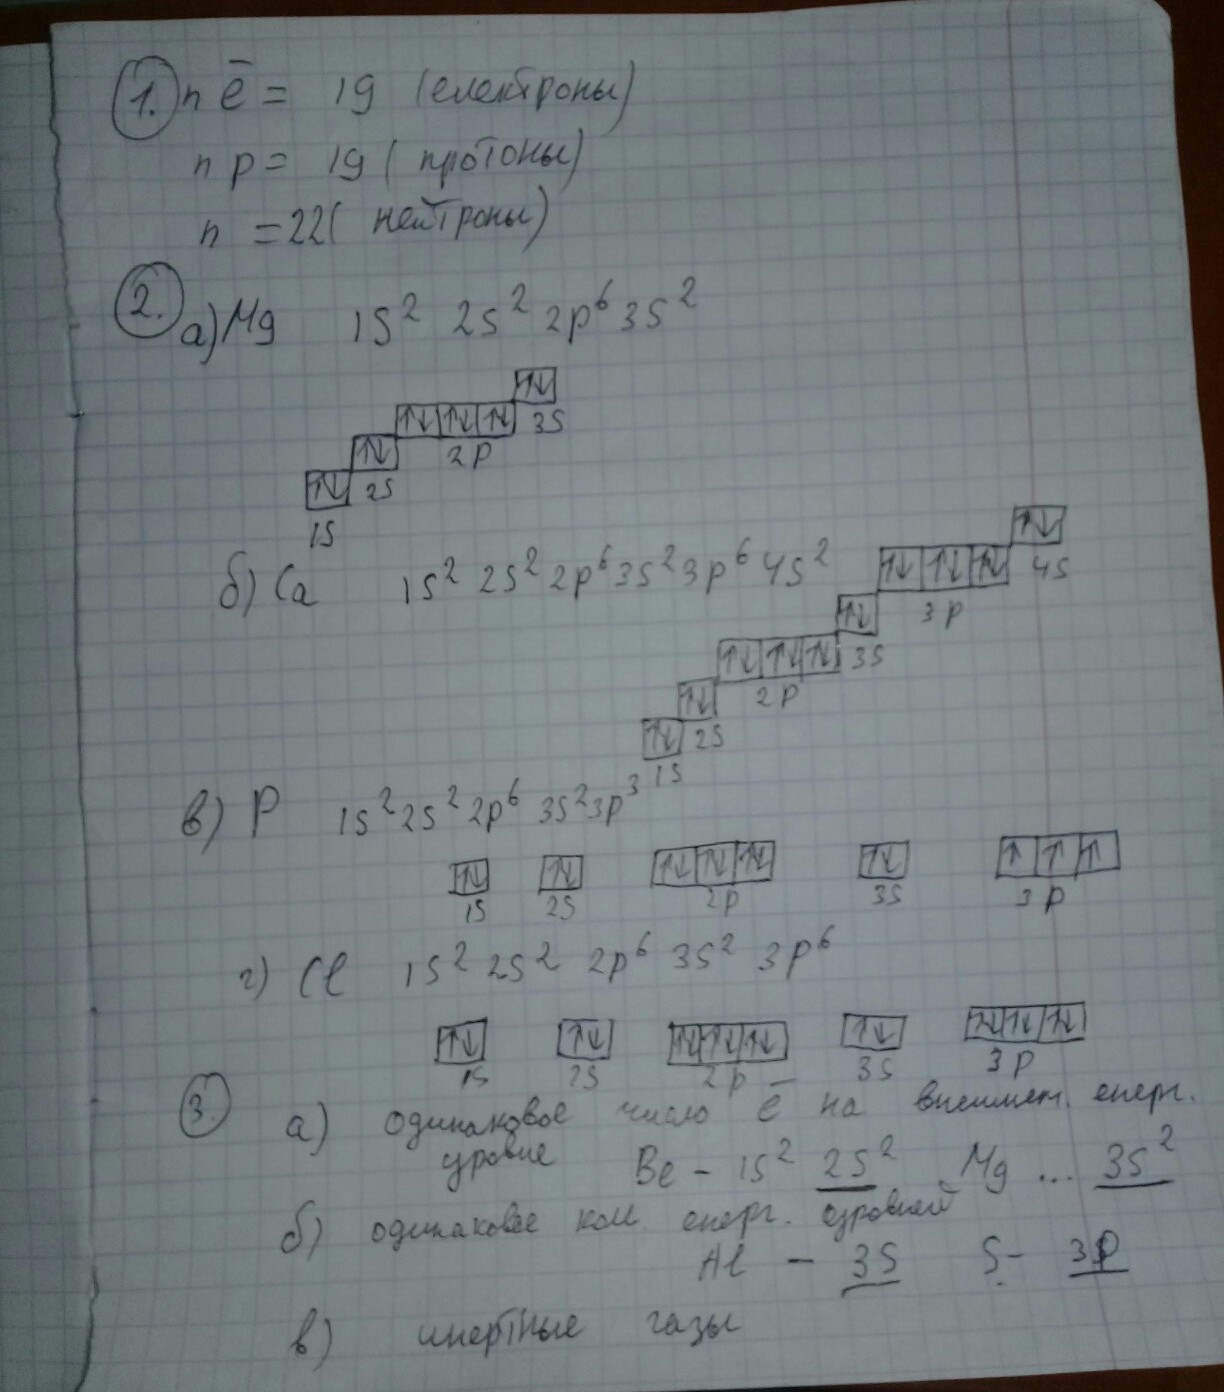 1. n ē = 19 (електроны)
n p = 19 (протоны)
n = 22 (нейтроны)
2. а) Mg 1S² 2S² 2p⁶ 3S²
↑↓
↑↓ ↑↓ ↑↓ 3S
↑↓ 2P
↑↓ 2S
1S
б) Ca 1S² 2S² 2p⁶ 3S² 3p⁶ 4S²
↑↓
↑↓ ↑↓ ↑↓ 4S
↑↓ 3P
↑↓ ↑↓ ↑↓ 3S
↑↓ 2P
↑↓ 2S
1S
в) P 1S² 2S² 2p⁶ 3S² 3p³
↑↓ ↑↓ ↑↓ ↑↓ ↑↓ ↑↓ ↑ ↑ ↑
1S 2S 2p 3S 3p
г) Cl 1S² 2S² 2p⁶ 3S² 3p⁶
↑↓ ↑↓ ↑↓ ↑↓ ↑↓ ↑↓ ↑↓ ↑↓ ↑↓
1S 2S 2p 3S 3p
3. а) одинаковое число ē на внешнем. енерг.
уровне Be – 1S² 2S² Mg ... 3S²
б) одинаковое кол. енерг. уровней
Al – 3S S – 3P
в) инертные газы